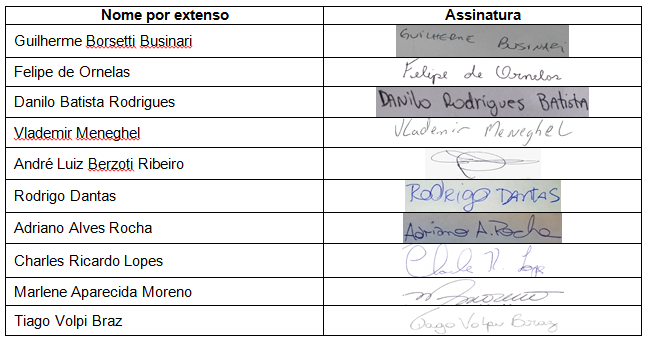 Nome por extenso Assinatura
Guilherme Borsetti Businari GUILHERME BUSINARI
Felipe de Ornelas Felipe de Ornelas
Danilo Batista Rodrigues DANILO RODRIGUES BATISTA
Vlademir Meneghel Vlademir Meneghel
André Luiz Berzoti Ribeiro
Rodrigo Dantas RODRIGO DANTAS
Adriano Alves Rocha Adriano A. Rocha
Charles Ricardo Lopes Charle R. Lopes
Marlene Aparecida Moreno
Tiago Volpi Braz Tiago Volpi Braz